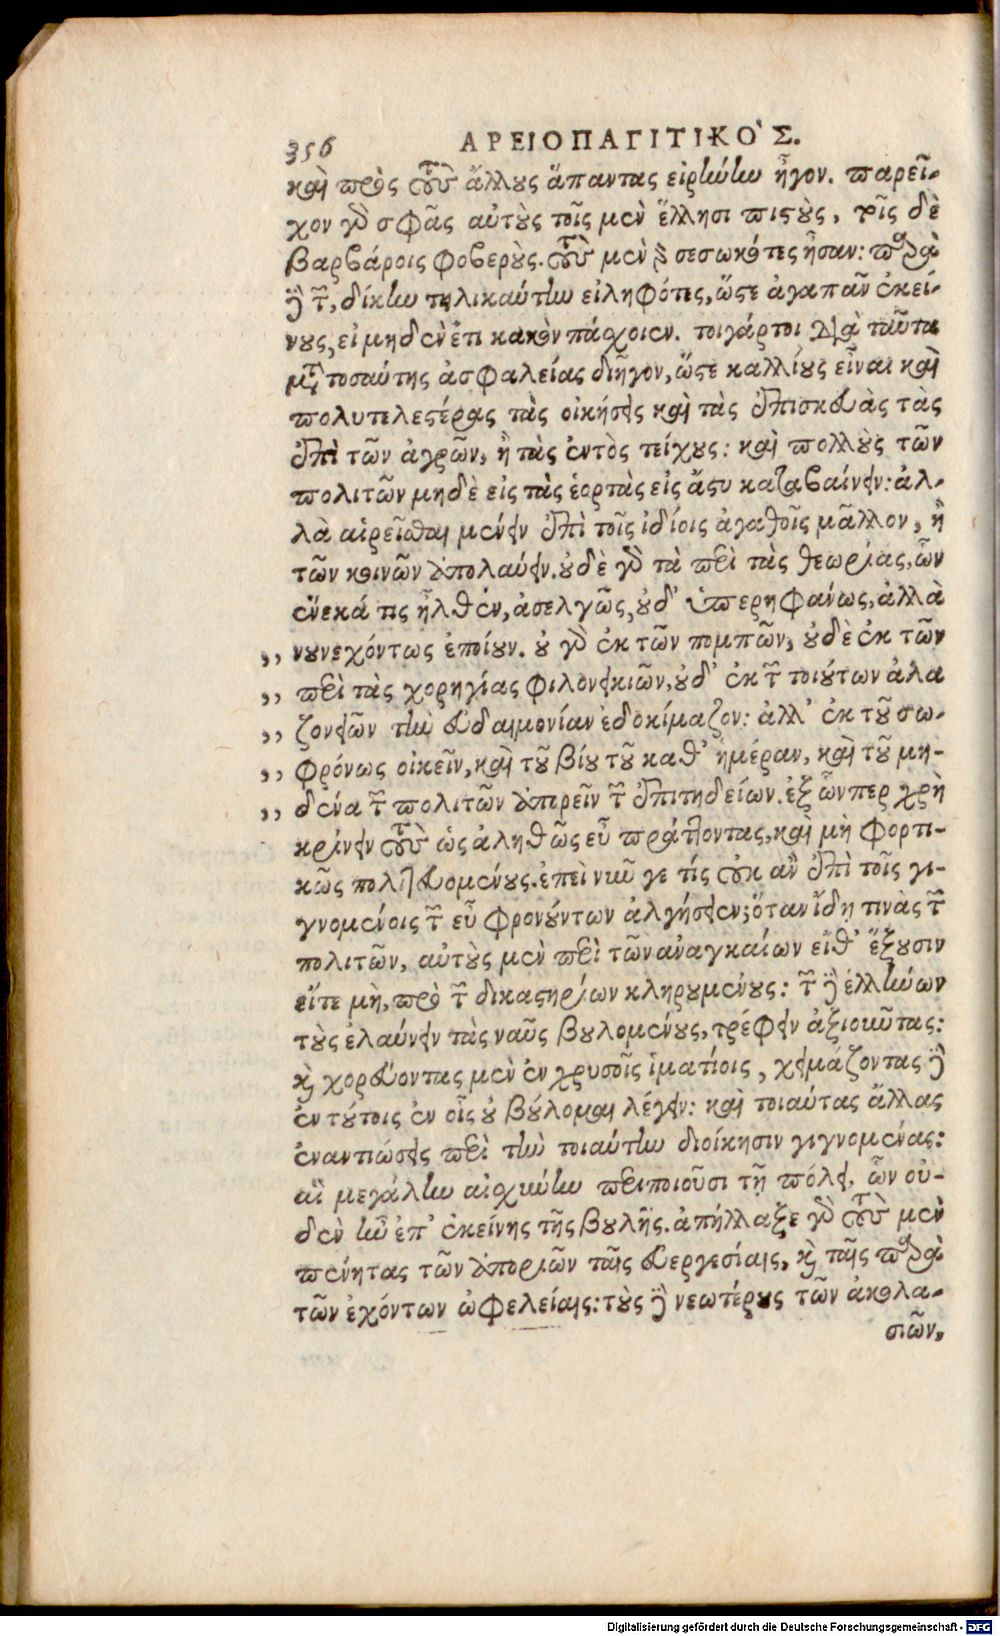 356 ΑΡΕΙΟΠΑΓΙΤΙΚΟ`Σ.
καὶ πρὸς τοὺς ἄλλους ἅπαντας εἰρήνην ἦγον. παρεῖ-
χον γὰρ σφᾶς αὐτοὺς τοῖς μὲν ἕλλησι πιστοὺς, τοῖς δὲ
βαρβάροις φοβερούς. τοὺς μὲν γὰρ σεσωκότες ἦσαν: παρὰ
δὲ τῶν, δίκην τηλικαύτην εἰληφότες, ὥστε ἀγαπᾶν ἐκεί-
νους, εἰ μηδὲν ἔτι κακὸν πάσχοιεν. τοιγάρτοι διὰ ταῦτα
μετὰ τοσαύτης ἀσφαλείας διῆγον, ὥστε καλλίους εἶναι καὶ
πολυτελεστέρας τὰς οἰκήσεις καὶ τὰς ἐπισκευὰς τὰς
ἐπὶ τῶν ἀγρῶν, ἢ τὰς ἐντὸς τείχους: καὶ πολλοὺς τῶν
πολιτῶν μηδὲ εἰς τὰς ἑορτὰς εἰς ἄστυ καταβαίνειν: ἀλ-
λὰ αἱρεῖσθαι μένειν ἐπὶ τοῖς ἰδίοις ἀγαθοῖς μᾶλλον, ἢ
τῶν κοινῶν ἀπολαύειν. οὐδὲ γὰρ τὰ περὶ τὰς θεωρίας, ὧν
ἕνεκά τις ἦλθεν, ἀσελγῶς, οὐδ' ὑπερηφάνως, ἀλλὰ
,, νουνεχόντως ἐποίουν. οὐ γὰρ ἐκ τῶν πομπῶν, οὐδὲ ἐκ τῶν
,, περὶ τὰς χορηγίας φιλονεικιῶν, οὐδ' ἐκ τῶν τοιούτων ἀλα
,, ζονειῶν τὴν εὐδαιμονίαν ἐδοκίμαζον: ἀλλ' ἐκ τοῦ σω-
,, φρόνως οἰκεῖν, καὶ τοῦ βίου τοῦ καθ' ἡμέραν, καὶ τοῦ μη-
,, δένα τῶν πολιτῶν ἀπορεῖν τῶν ἐπιτηδείων. ἐξ ὧνπερ χρὴ
κρίνειν τοὺς ὡς ἀληθῶς εὖ πράττοντας, καὶ μὴ φορτι-
κῶς πολιτευομένους. ἐπεὶ νῦν γε τίς οὐκ ἂν ἐπὶ τοῖς γι-
γνομένοις τῶν εὖ φρονούντων ἀλγήσειεν; ὅταν ἴδῃ τινὰς τῶν
πολιτῶν, αὐτοὺς μὲν περὶ τῶν ἀναγκαίων εἴθ' ἕξουσιν
εἴτε μὴ, πρὸ τῶν δικαστηρίων κληρουμένους: τῶν δὲ ἑλλήνων
τοὺς ἐλαύνειν τὰς ναῦς βουλομένους, τρέφειν ἀξιοῦντας:
καὶ χορεύοντας μὲν ἐν χρυσοῖς ἱματίοις, χειμάζοντας δὲ
ἐν τούτοις ἐν οἷς οὐ βούλομαι λέγειν: καὶ τοιαύτας ἄλλας
ἐναντιώσεις περὶ τὴν τοιαύτην διοίκησιν γιγνομένας:
αἳ μεγάλην αἰσχύνην περιποιοῦσι τῇ πόλει, ὧν οὐ-
δὲν ἦν ἐπ' ἐκείνης τῆς βουλῆς. ἀπήλλαξε γὰρ τοὺς μὲν
πένητας τῶν ἀποριῶν ταῖς εὐεργεσίαις, καὶ ταῖς παρὰ
τῶν ἐχόντων ὠφελείαις: τοὺς δὲ νεωτέρους τῶν ἀκολα-
σιῶν,
Digitalisierung gefördert durch die Deutsche Forschungsgemeinschaft - DFG